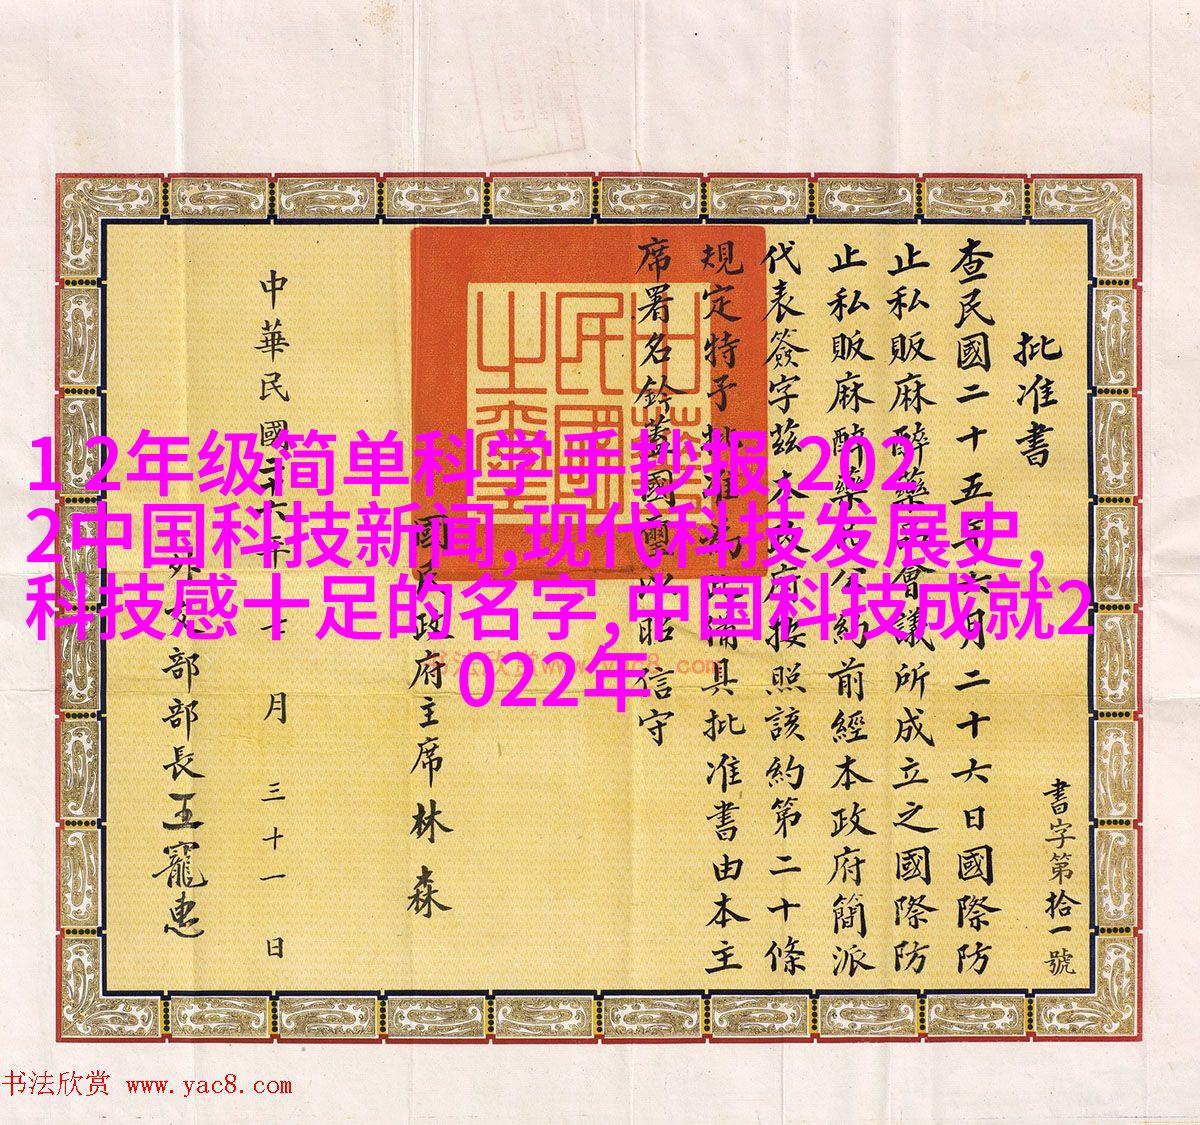 批准書
書字第拾一號
查民國二十五年六月二十六日國際防
止私販麻醉藥品會議所成立之國際防
止私販麻醉藥品公約前經本政府簡派
代表簽字茲本政府按照該約第二十條
規定特予批准為此備具批准書由本主
席署名鈐蓋國璽以昭信守
中華民國之璽
國民政府主席林森
中華民國二十六年 月三十一日
外交部部長王寵惠
1 2年级简单科学手抄报,202
2中国科技新闻,现代科技发展史,
科技感十足的名字,中国科技成就2
022年
书法欣赏 www.yac8.com
书法欣赏 www.yac8.com